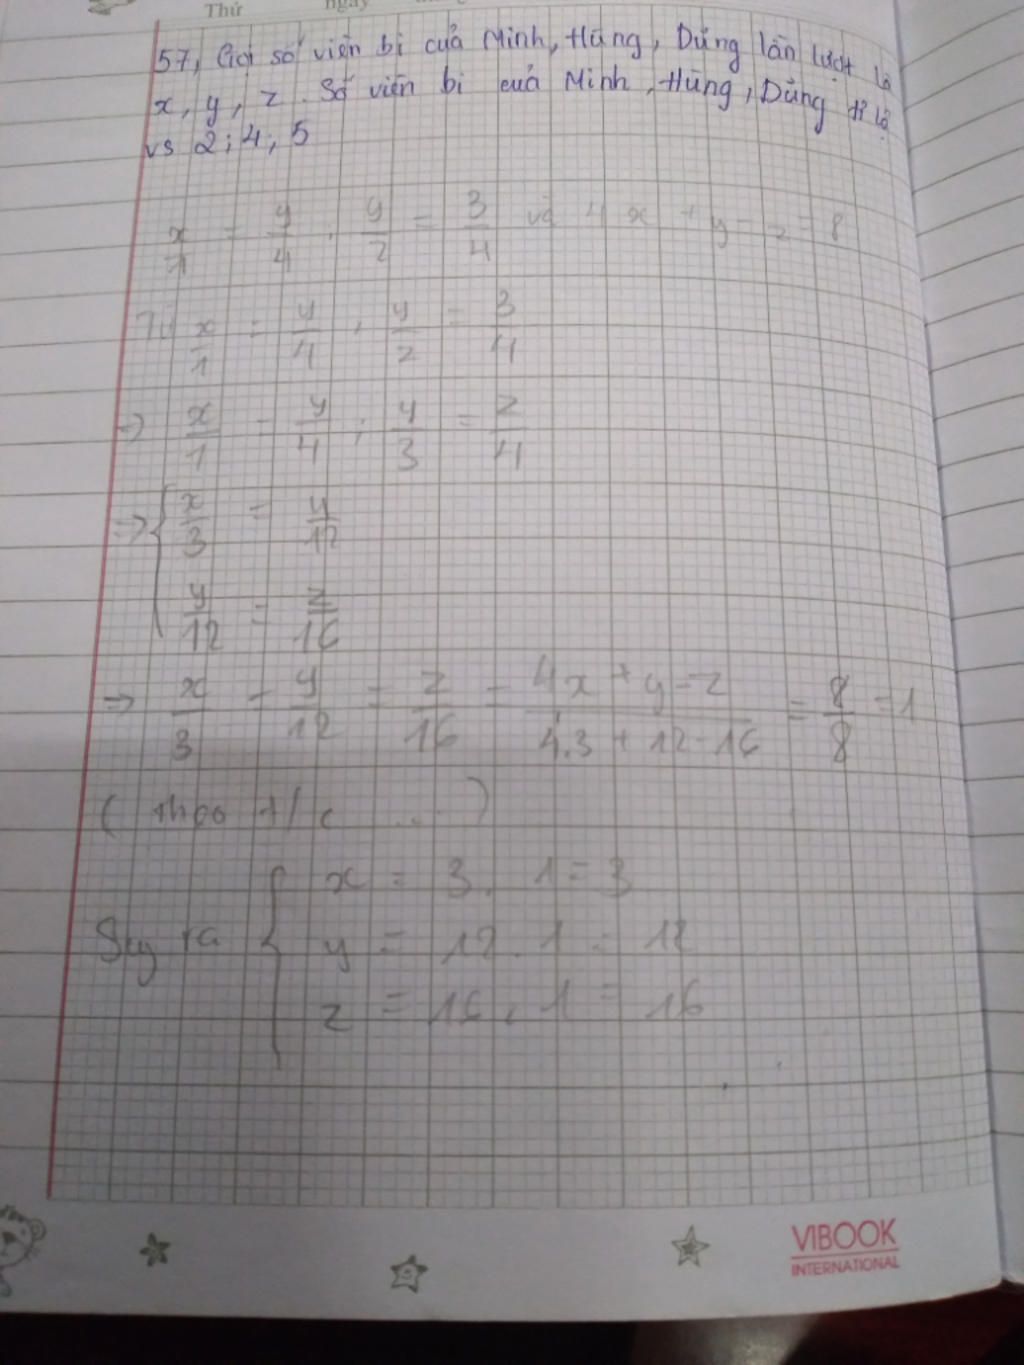 Thứ ngày
57, Gọi số viên bi của Minh, Hùng, Dũng lần lượt là
x, y, z. Số viên bi của Minh, Hùng, Dũng tỉ lệ
vs 2; 4; 5
x/1 = y/4 ; y/2 = 3/4 và 4x + y - z = 8
Từ x/1 = y/4 ; y/2 = 3/4
→ x/1 = y/4 ; y/3 = z/4
⇒ { x/3 = y/12
y/12 = z/16
→ x/3 = y/12 = z/16 = 4x + y - z / 4.3 + 12 - 16 = 8/8 = 1
( theo t/c ... )
Suy ra { x = 3. 1 = 3
y = 12. 1 = 12
z = 16. 1 = 16
VIBOOK
INTERNATIONAL